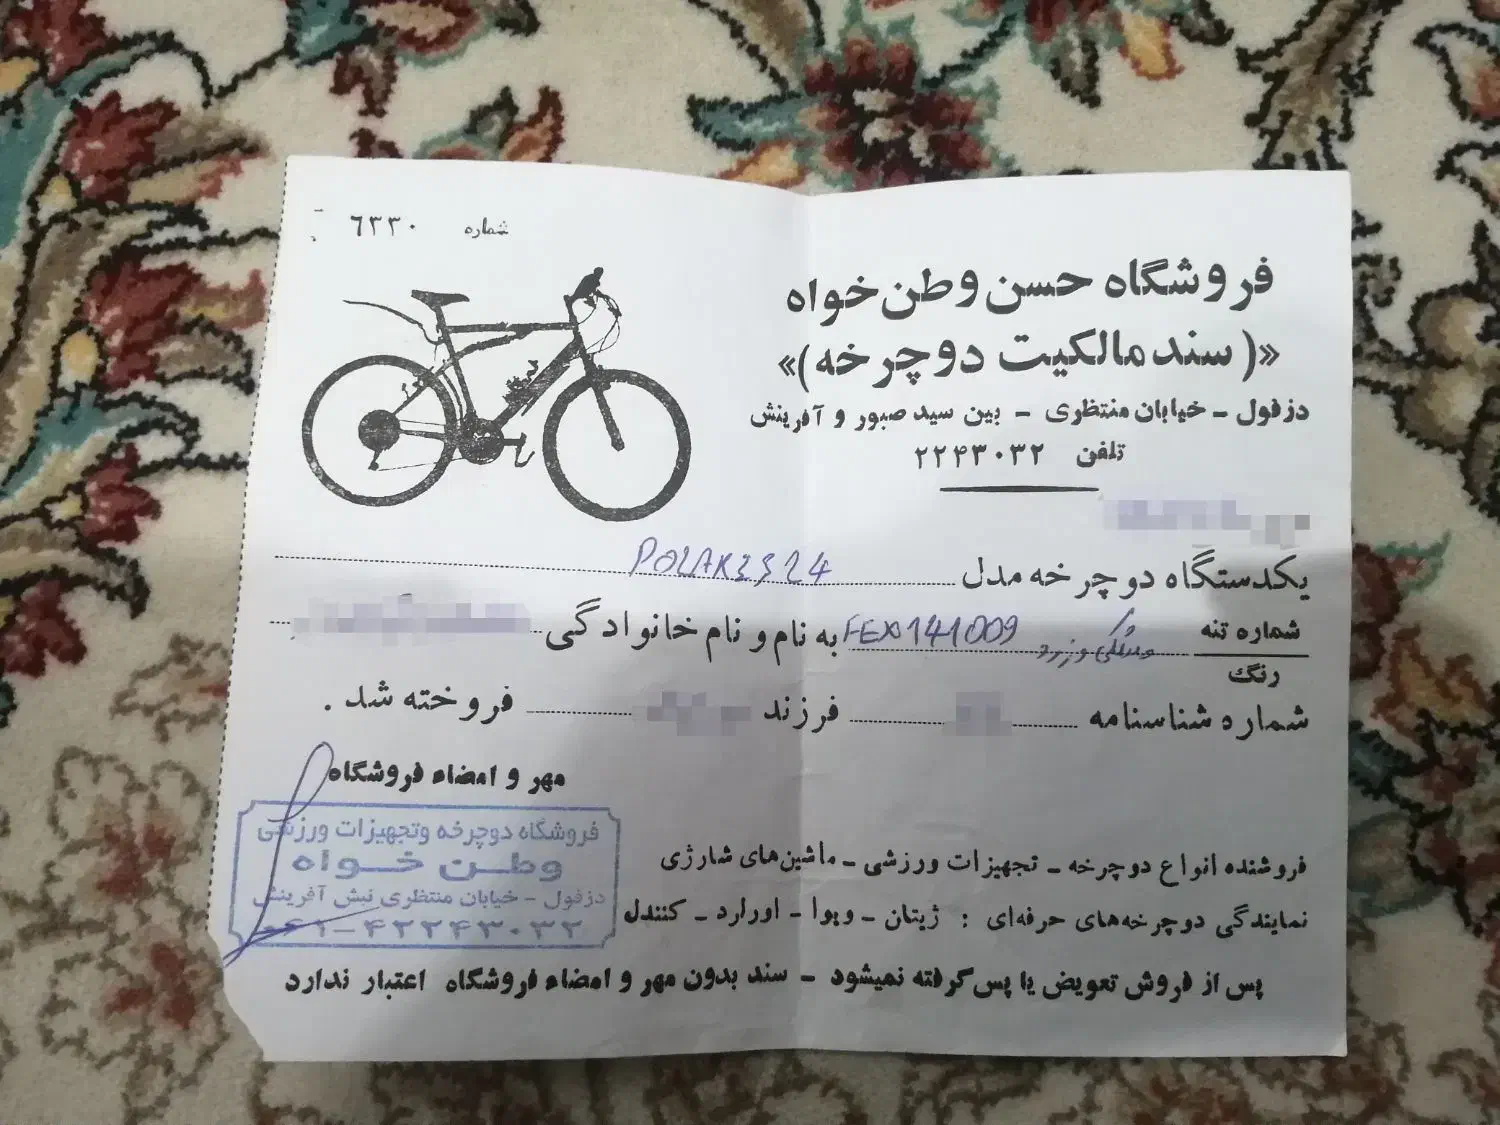 شماره ٦٣٣٠
فروشگاه حسن وطن‌خواه
«(سند مالکیت دوچرخه)»
دزفول - خیابان منتظری - بین سید صبور و آفرینش
تلفن ۲۲۴۳۰۳۲
یکدستگاه دوچرخه مدل POLARIS 24
شماره تنه
رنگ
مشکی و زرد
FEX141009 به نام و نام خانوادگی
شماره شناسنامه فرزند فروخته شد.
مهر و امضاء فروشگاه
فروشگاه دوچرخه وتجهیزات ورزشی
وطن خواه
دزفول - خیابان منتظری نبش آفرینش
۰۶۱-۴۲۲۴۳۰۳۲
فروشنده انواع دوچرخه - تجهیزات ورزشی - ماشین‌های شارژی
نمایندگی دوچرخه‌های حرفه‌ای : ژیتان - ویوا - اورارد - کنندل
پس از فروش تعویض یا پس گرفته نمیشود - سند بدون مهر و امضاء فروشگاه اعتبار ندارد